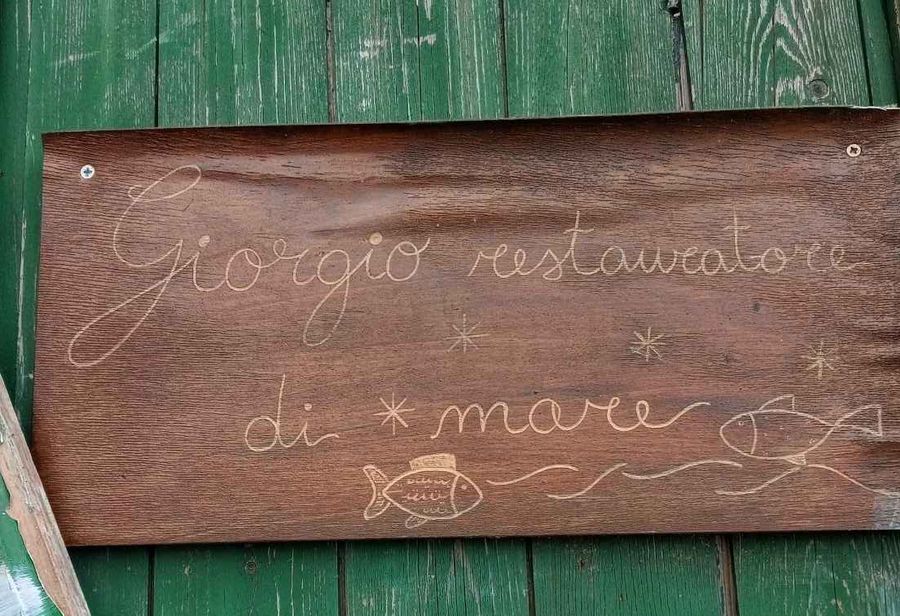 Giorgio restauratore
di mare